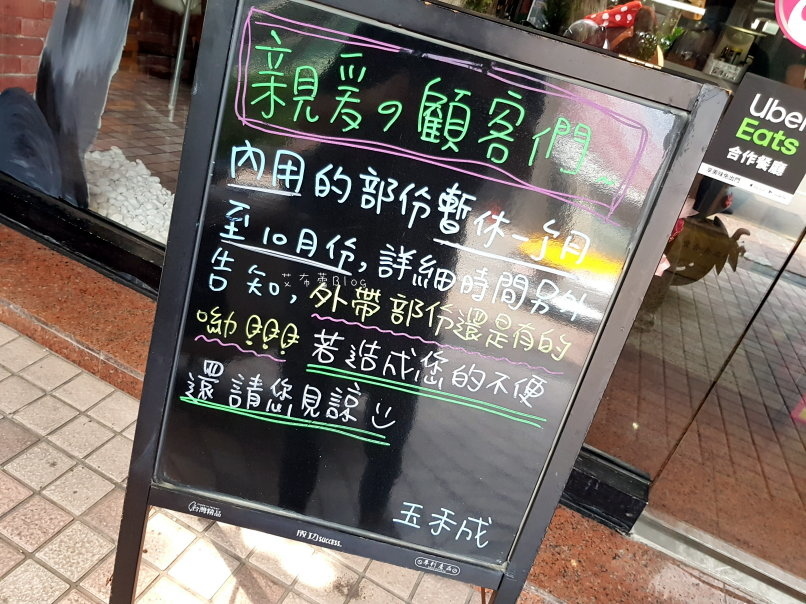 親爱の顧客們
內用的部份暫休一个月
至10月份,詳細時間另外
告知,外帶部份還是有的
呦!!! 若造成您的不便
還請您見諒
五禾成
艾布蕾Blog
台灣精品
成功success.
專利產品
Uber
Eats
合作餐廳